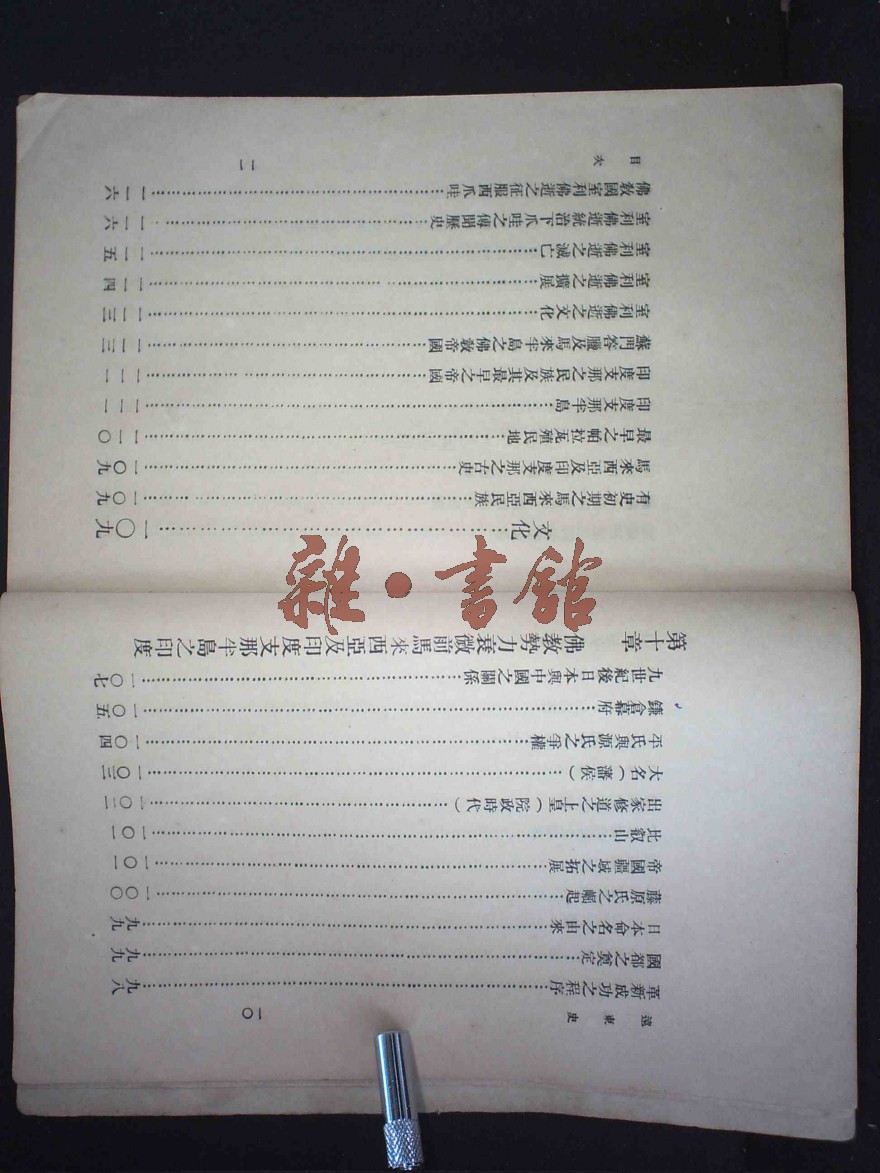 遠東史
一〇
革新成功之程序……九八
國都之奠定……九九
日本命名之由來……九九
藤原氏之崛起……一〇〇
帝國疆域之拓展……一〇一
比叡山……一〇一
出家修道之上皇（院政時代）……一〇二
大名（藩侯）……一〇三
平氏與源氏之爭權……一〇四
鎌倉幕府……一〇五
九世紀後日本與中國之關係……一〇七
第十章 佛教勢力衰微前馬來西亞及印度支那半島之印度
文化……一〇九
有史初期之馬來西亞民族……一〇九
馬來西亞及印度支那之古史……一〇九
最早之帕拉瓦殖民地……一一〇
印度支那半島……一一一
印度支那之民族及其最早之帝國……一一一
蘇門答臘及馬來半島之佛教帝國……一一三
室利佛逝之文化……一一三
室利佛逝之擴展……一一四
室利佛逝之滅亡……一一五
室利佛逝統治下爪哇之傳聞歷史……一一六
佛教國室利佛逝之征服西爪哇……一一六
目次
一一
雜·書館